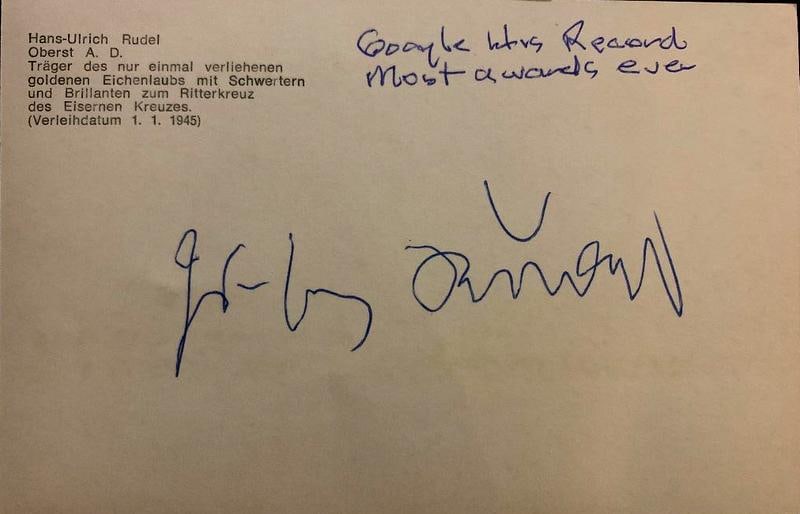 Hans-Ulrich Rudel
Oberst A. D.
Träger des nur einmal verliehenen
goldenen Eichenlaubs mit Schwertern
und Brillanten zum Ritterkreuz
des Eisernen Kreuzes.
(Verleihdatum 1. 1. 1945)
Google His Record
Most awards ever